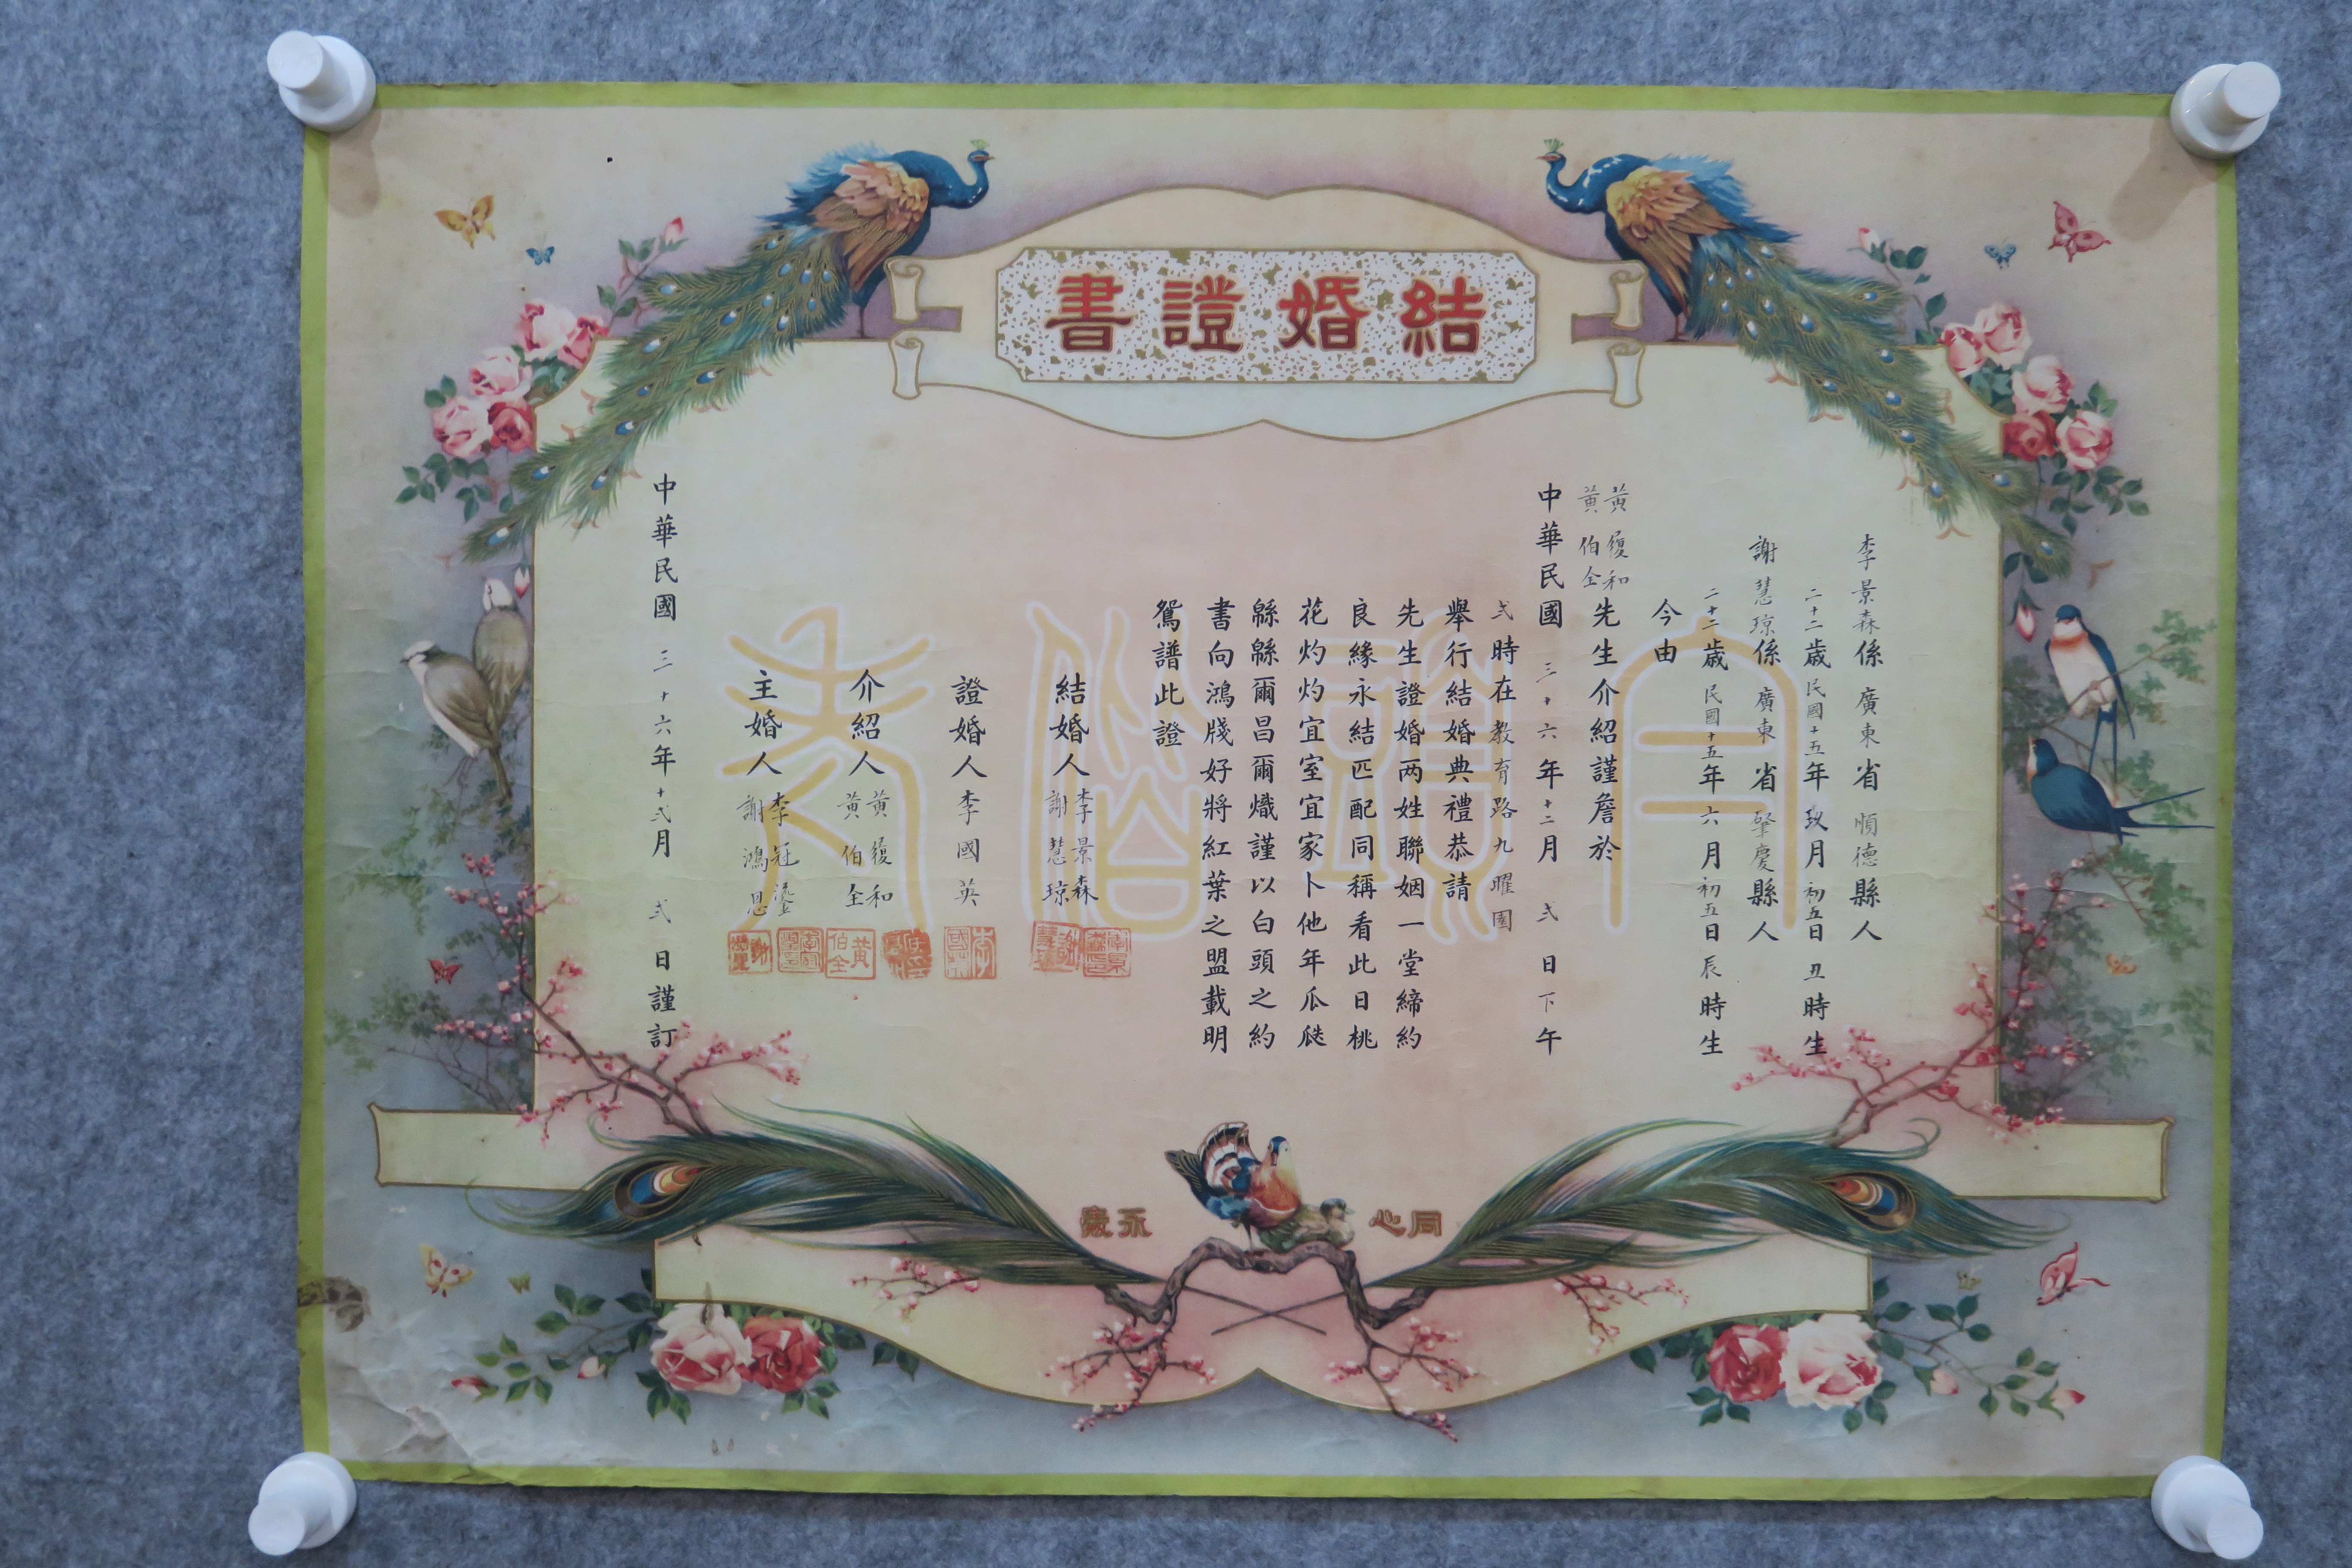 結婚證書
李景森係廣東省順德縣人
二十二歲民國十五年玖月初五日丑時生
謝慧琼係廣東省肇慶縣人
二十二歲民國十五年六月初五日辰時生
今由
黃履和
黃伯全
先生介紹謹詹於
中華民國三十六年十二月弍日下午
弍時在教育路九曜園
舉行結婚典禮恭請
先生證婚两姓聯姻一堂締約
良緣永結匹配同稱看此日桃
花灼灼宜室宜家卜他年瓜瓞
緜緜爾昌爾熾謹以白頭之約
書向鴻牋好將紅葉之盟載明
鴛譜此證
結婚人
李景森
謝慧琼
證婚人李國英
介紹人
黃履和
黃伯全
主婚人
李冠鎏
謝鴻恩
中華民國三十六年十弍月弍日謹訂
白頭偕老
同心
永歲